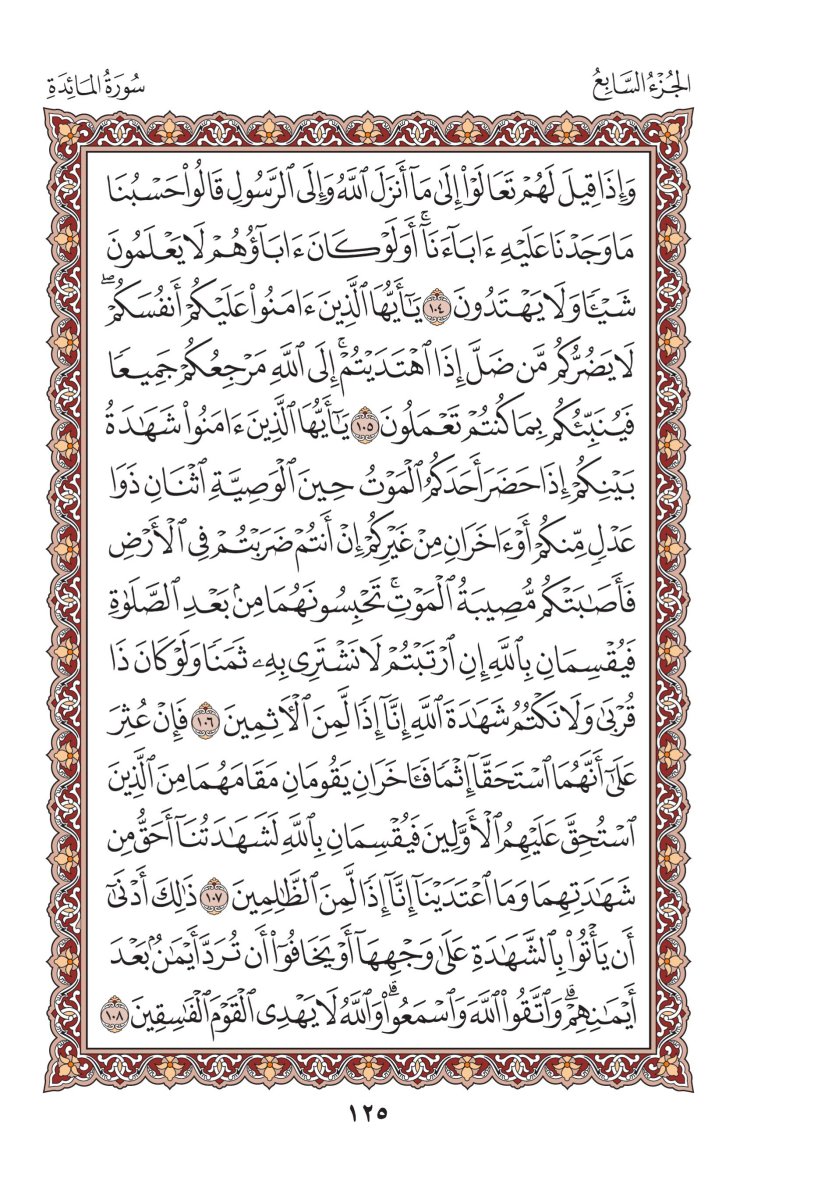 الجُزْءُ السَّابِعُ
سُورَةُ المَائِدَةِ
وَإِذَا قِيلَ لَهُمْ تَعَالَوْا۟ إِلَىٰ مَآ أَنزَلَ ٱللَّهُ وَإِلَى ٱلرَّسُولِ قَالُوا۟ حَسْبُنَا
مَا وَجَدْنَا عَلَيْهِ ءَابَآءَنَآۚ أَوَلَوْ كَانَ ءَابَآؤُهُمْ لَا يَعْلَمُونَ
شَيْـًٔا وَلَا يَهْتَدُونَ ١٠٤ يَـٰٓأَيُّهَا ٱلَّذِينَ ءَامَنُوا۟ عَلَيْكُمْ أَنفُسَكُمْۖ
لَا يَضُرُّكُم مَّن ضَلَّ إِذَا ٱهْتَدَيْتُمْۚ إِلَى ٱللَّهِ مَرْجِعُكُمْ جَمِيعًا
فَيُنَبِّئُكُم بِمَا كُنتُمْ تَعْمَلُونَ ١٠٥ يَـٰٓأَيُّهَا ٱلَّذِينَ ءَامَنُوا۟ شَهَـٰدَةُ
بَيْنِكُمْ إِذَا حَضَرَ أَحَدَكُمُ ٱلْمَوْتُ حِينَ ٱلْوَصِيَّةِ ٱثْنَانِ ذَوَا
عَدْلٍ مِّنكُمْ أَوْ ءَاخَرَانِ مِنْ غَيْرِكُمْ إِنْ أَنتُمْ ضَرَبْتُمْ فِى ٱلْأَرْضِ
فَأَصَـٰبَتْكُم مُّصِيبَةُ ٱلْمَوْتِۚ تَحْبِسُونَهُمَا مِنۢ بَعْدِ ٱلصَّلَوٰةِ
فَيُقْسِمَانِ بِٱللَّهِ إِنِ ٱرْتَبْتُمْ لَا نَشْتَرِى بِهِۦ ثَمَنًا وَلَوْ كَانَ ذَا
قُرْبَىٰ وَلَا نَكْتُمُ شَهَـٰدَةَ ٱللَّهِ إِنَّآ إِذًا لَّمِنَ ٱلْـَٔاثِمِينَ ١٠٦ فَإِنْ عُثِرَ
عَلَىٰٓ أَنَّهُمَا ٱسْتَحَقَّآ إِثْمًا فَـَٔاخَرَانِ يَقُومَانِ مَقَامَهُمَا مِنَ ٱلَّذِينَ
ٱسْتُحِقَّ عَلَيْهِمُ ٱلْأَوَّلِينَ فَيُقْسِمَانِ بِٱللَّهِ لَشَهَـٰدَتُنَآ أَحَقُّ مِن
شَهَـٰدَتِهِمَا وَمَا ٱعْتَدَيْنَآ إِنَّآ إِذًا لَّمِنَ ٱلظَّـٰلِمِينَ ١٠٧ ذَٰلِكَ أَدْنَىٰٓ
أَن يَأْتُوا۟ بِٱلشَّهَـٰدَةِ عَلَىٰ وَجْهِهَآ أَوْ يَخَافُوٓا۟ أَن تُرَدَّ أَيْمَـٰنٌۢ بَعْدَ
أَيْمَـٰنِهِمْۗ وَٱتَّقُوا۟ ٱللَّهَ وَٱسْمَعُوا۟ۗ وَٱللَّهُ لَا يَهْدِى ٱلْقَوْمَ ٱلْفَـٰسِقِينَ ١٠٨
١٢٥